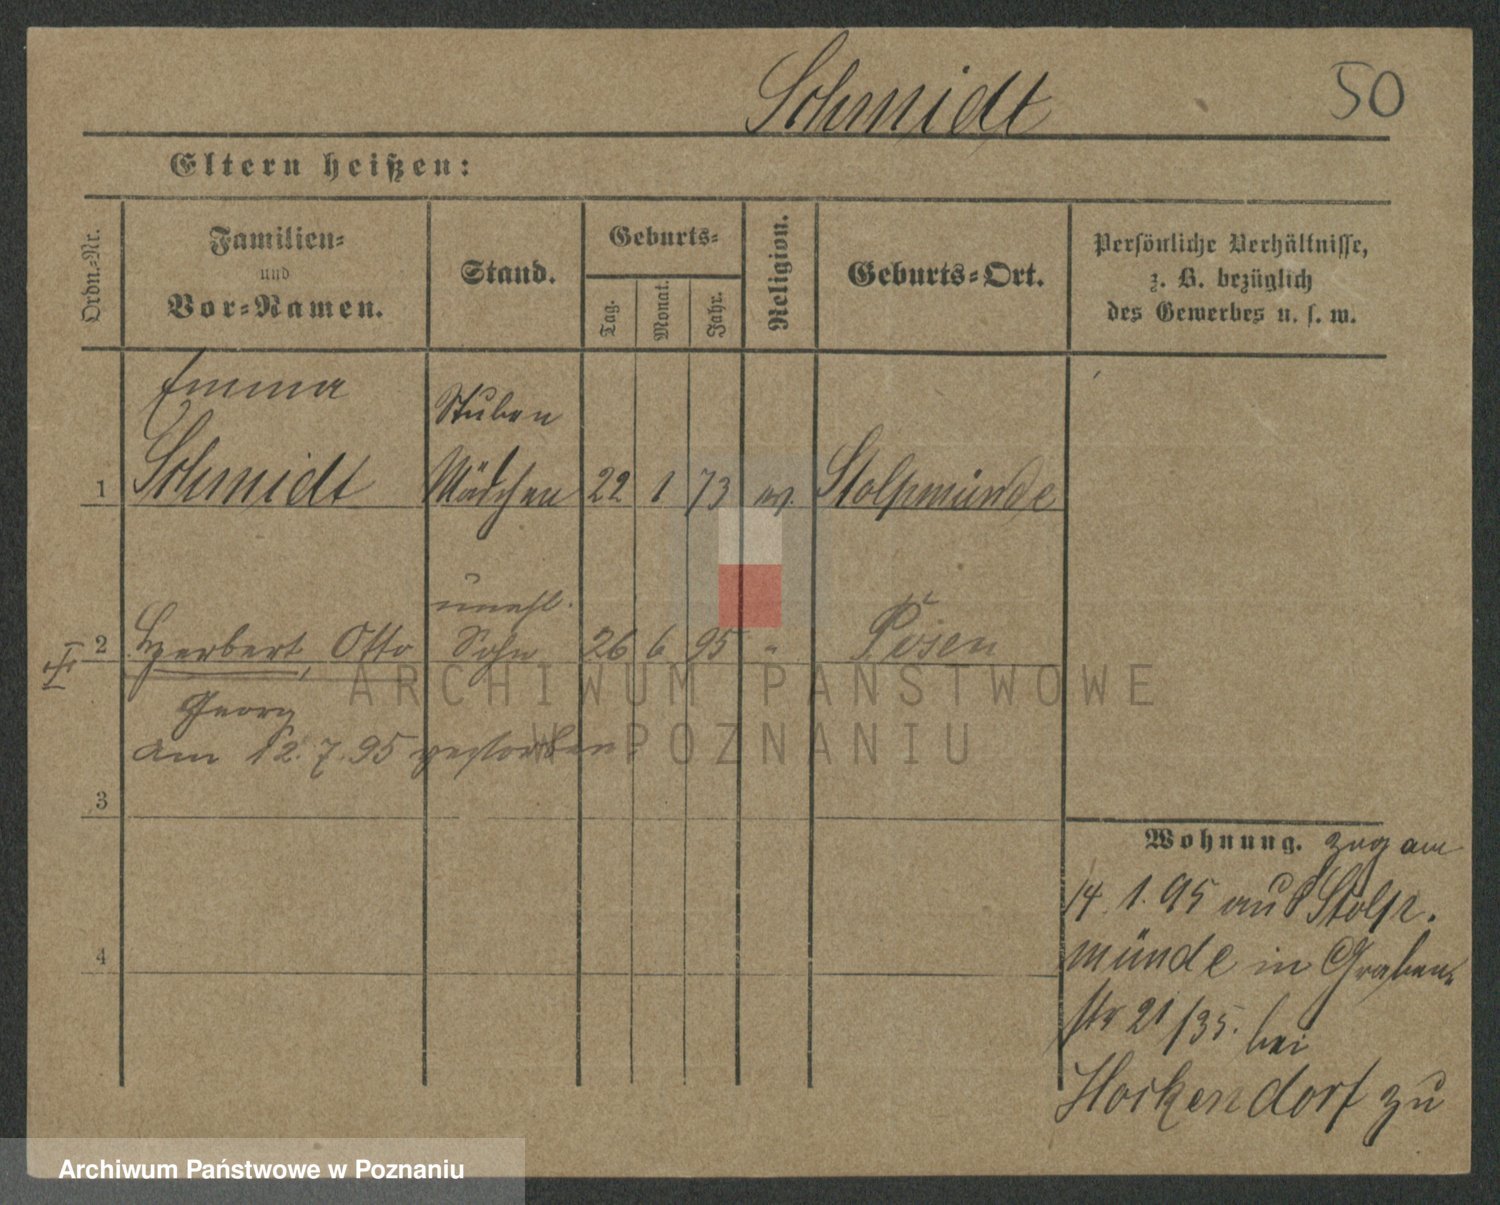 Schmidt 50
Eltern heißen:
Ordn.=Nr.
Familien=
und
Vor=Namen.
Stand.
Geburts=
Tag.
Monat.
Jahr.
Religion.
Geburts=Ort.
Persönliche Verhältnisse,
z. B. bezüglich
des Gewerbes u. s. w.
Emma Stuben
1 Schmidt Mädchen 22 1 73 ev. Stolpmünde
unehl.
2 Herbert, Otto Sohn 26 6 95 " Posen
Georg
am 12.7.95 verstorben
3
4
Wohnung. zug am
14.1.95 aus Stolp.
münde in Graben=
str 21/35. bei
Hockendorf zu
ARCHIWUM PAŃSTWOWE
W POZNANIU
Archiwum Państwowe w Poznaniu